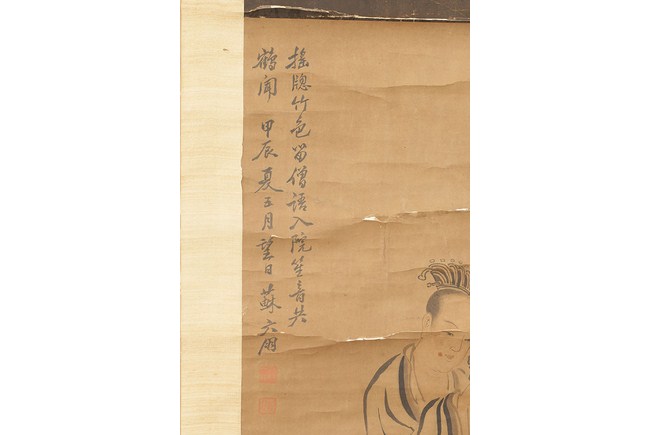 搖牕竹色留僧語入院笙音共
鶴聞 甲辰夏五月望日蘇六朋